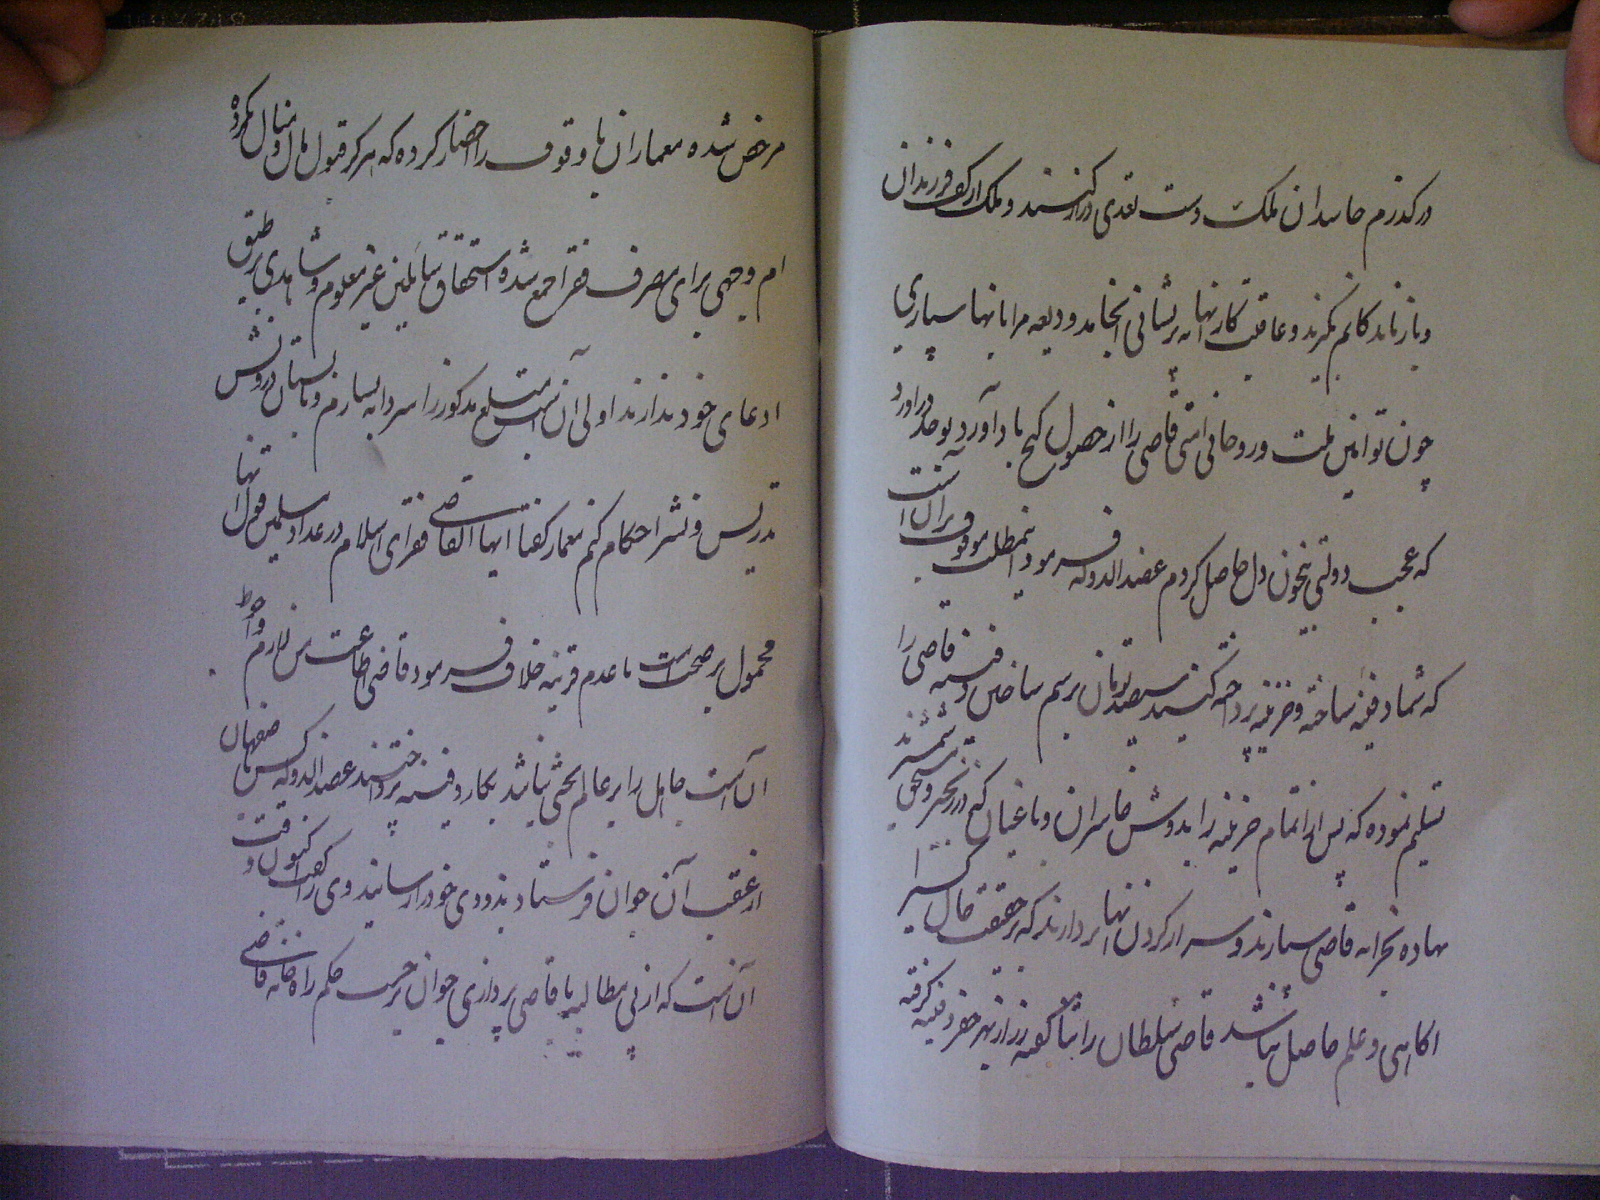 در گذرم حاسدان ملک دست تعدی دراز کنند و ملک از کف فرزندان
و بازماندگانم بگیرند و عاقبت کار آنها به پریشانی انجامد ودیعه مرا بآنها سپاری
چون توامین ملت و روحانی امتی قاضی را از حصول گنج باد آورد بوجد درآورد
که عجب دولتی بیخون دل حاصل کردم عضدالدوله فرمود اینمطلب موقوف بر آن است
که شما دفینه ساخته و خزینه پرداخته کنید سیصد تومان برسم ساختن دفینه قاضی را
تسلیم نموده که پس از اتمام خزینه را بدوش خاسران و یاغیان که در زنجیر و مستحق شمشیرند
نهاده بخزانه قاضی سپارند و سر از گردن آنها بردارند که بر حقیقت حال کسیرا
آگاهی و علم حاصل نباشد قاضی سلطان را ثنا گفته زر از بهر حفر دفینه گرفته
مرخص شده معماران با وقوف را احضار کرده که هرگز قبول مال و منال نکرده
ام وجهی برای مصرف فقرا جمع شده استحقاق سائلین غیر معلوم و شاهدی بر طبق
ادعای خود ندارند اولی آن است مبلغ مذکور را سردابه بسازم و تابستان در وی
تدریس و نشر احکام کنم معمار گفتا ایها القاضی فقرای اسلام در عداد مسلمین قول آنها
محمول بر صحت است با عدم قرینه خلاف فرمود قاضی اطاعت من لازم و احوط
آن است جاهل را بر عالم بحثی نباشد بکار دفینه پرداختند عضدالدوله کس باصفهان
از عقب آن جوان فرستاد بزودی خود را رسانید وی را گفت اکنون وقت
آنست که از پی مطالبه با قاضی پردازی جوان بر حسب حکم راه خانه قاضی